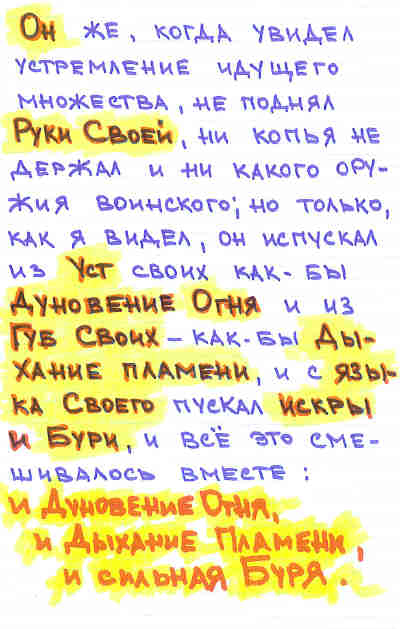 Он же, когда увидел
устремление идущего
множества, не поднял
Руки Своей, ни копья не
держал и ни какого ору-
жия воинского; но только,
как я видел, он испускал
из Уст своих как-бы
Дуновение Огня и из
Губ Своих – как-бы Ды-
хание пламени, и с язы-
ка Своего пускал искры
и Бури, и всё это сме-
шивалось вместе:
и Дуновение Огня,
и Дыхание Пламени,
и сильная Буря.